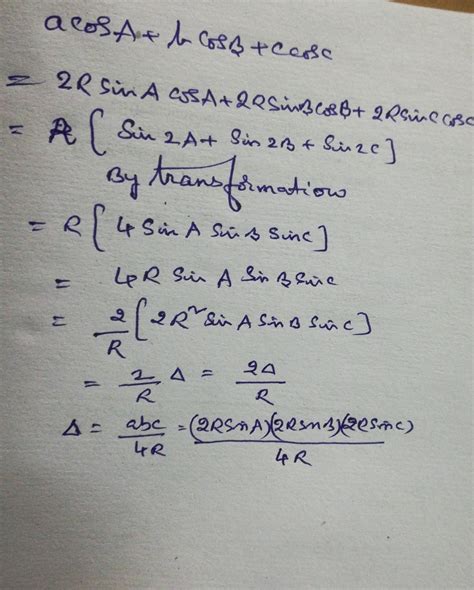 a cosA + b cosB + c cosc
= 2R sin A cosA + 2R sinB cosB + 2R sinc cosc
= R [ Sin 2A + Sin 2B + Sin 2C ]
By transformation
= R [ 4 Sin A Sin B Sinc ]
= 4R Sin A Sin B Sinc
= 2/R [ 2R² Sin A Sin B Sin C ]
= 2/R Δ = 2Δ/R
Δ = abc/4R = (2RsinA)(2RsinB)(2Rsinc)/4R